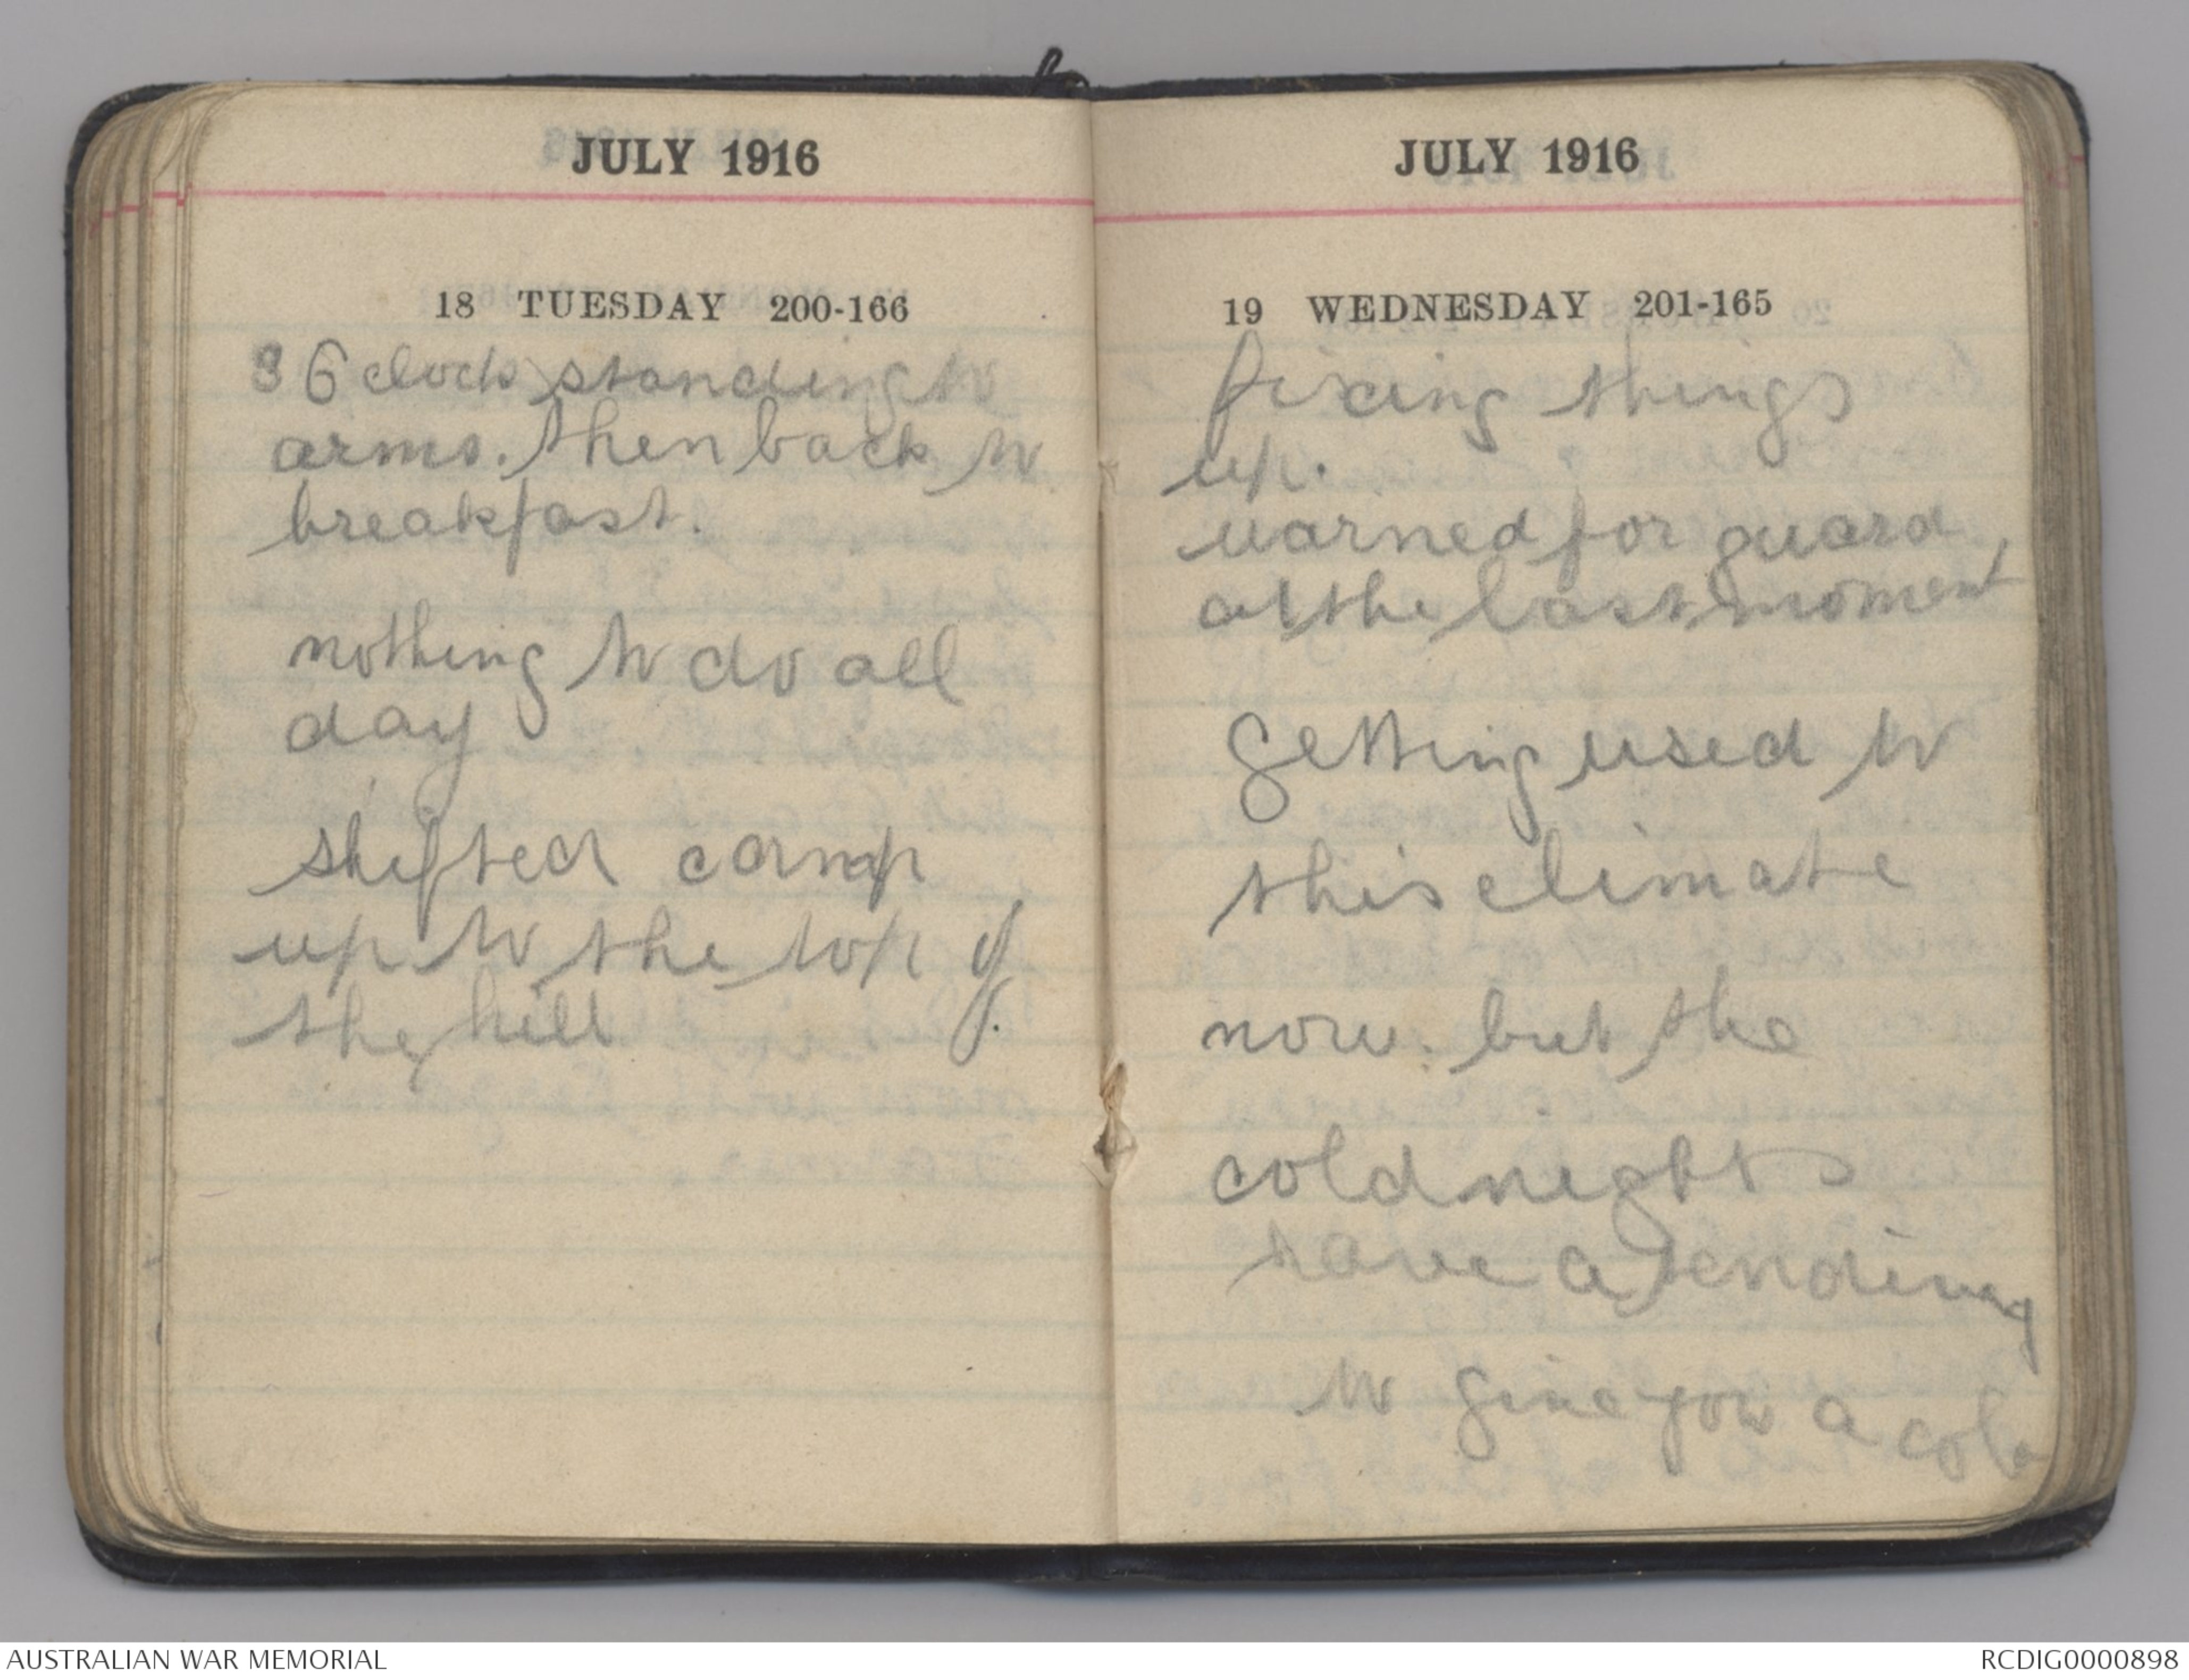 JULY 1916
18 TUESDAY 200-166
3 6 clock standing to
arms. then back to
breakfast.
nothing to do all
day
shifted camp
up to the top of
the hill
JULY 1916
19 WEDNESDAY 201-165
fixing things
up.
warned for guard
at the last moment
getting used to
this climate
now. but the
cold nights
have a tending
to give you a cold
AUSTRALIAN WAR MEMORIAL
RCDIG0000898